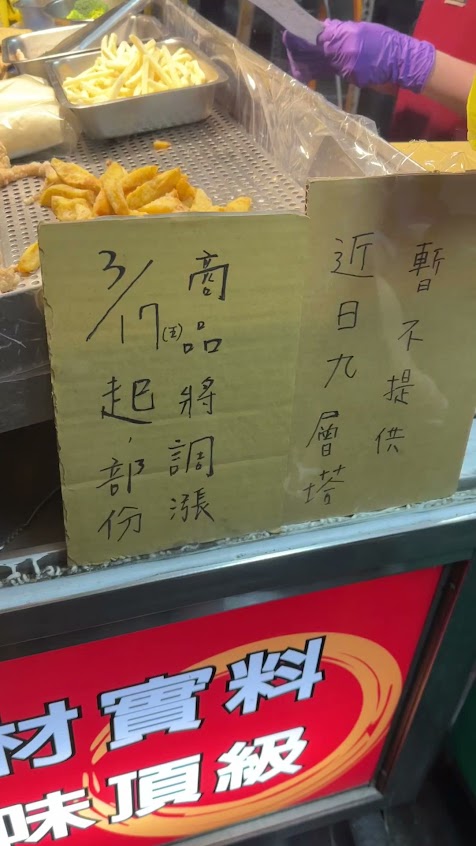 3/17(五)起,部份
商品將調漲
近日九層塔
暫不提供
材實料
味頂級